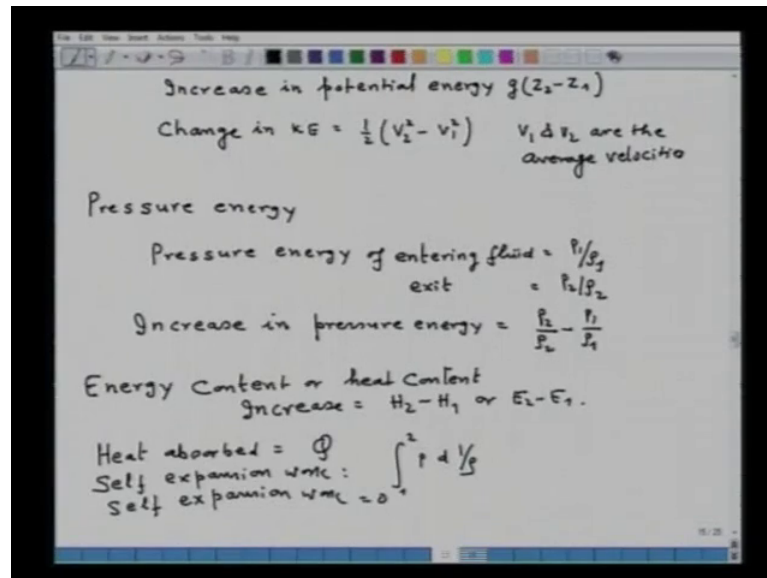 File Edit View Insert Actions Tools Help
Increase in potential energy g(Z₂-Z₁)
Change in KE = ½(V₂² - V₁²) V₁ & V₂ are the
average velocitio
Pressure energy
Pressure energy of entering fluid = P₁/ρ₁
exit = P₂/ρ₂
Increase in pressure energy = P₂/ρ₂ - P₁/ρ₁
Energy Content or heat Content
Increase = H₂-H₁ or E₂-E₁.
Heat absorbed = Q
Self expansion work : ∫₁² P d 1/ρ
Self expansion work = 0
15/25